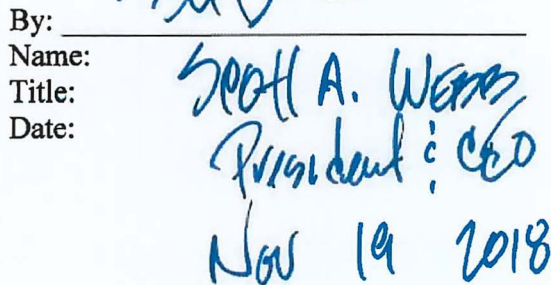 By:
Name: Scott A. Webb
Title: President & CEO
Date: Nov 19 2018